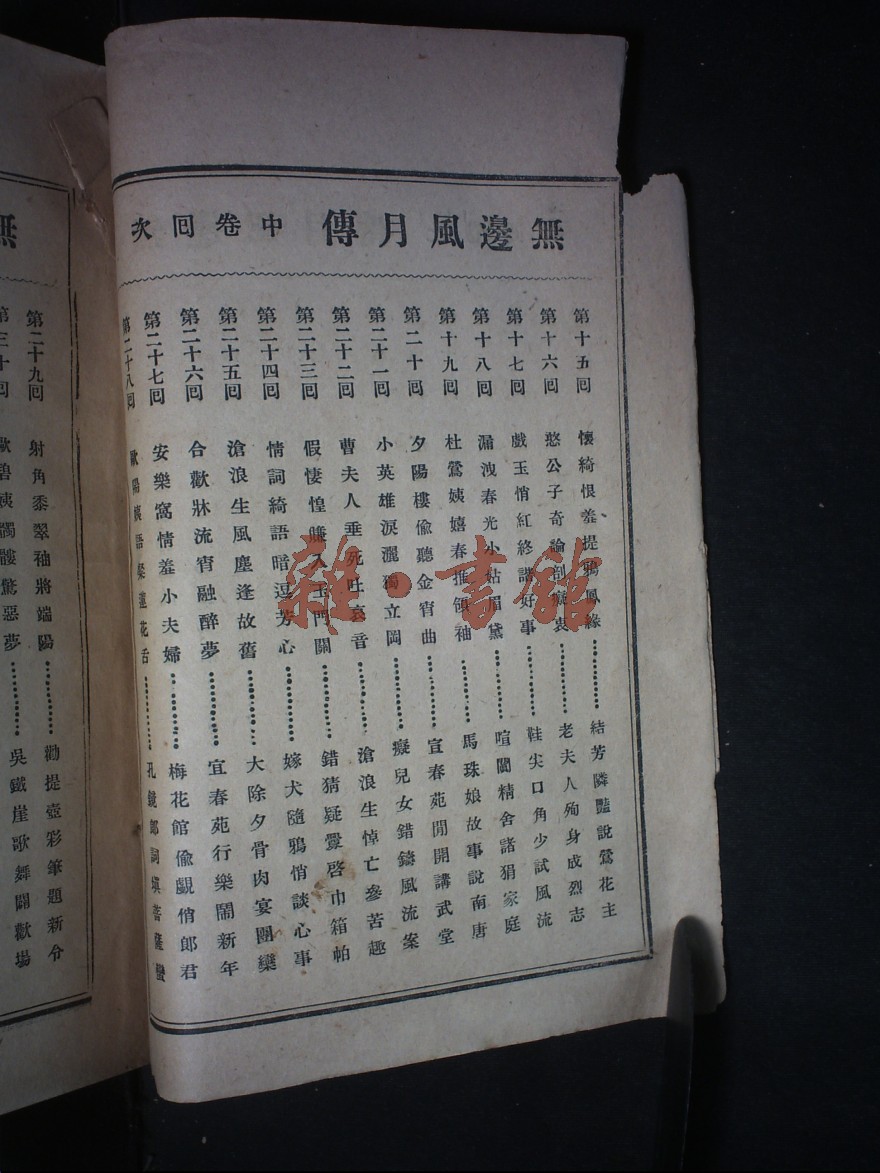 無邊風月傳 中卷回次
第十五回 懷綺恨羞提鴉鳳緣…………結芳隣豔說鶯花主
第十六回 憨公子奇論剖癡衷…………老夫人殉身成烈志
第十七回 戲玉悄紅終諧好事…………鞋尖口角少試風流
第十八回 漏洩春光小姑眉黛…………喧闐精舍諸狷家庭
第十九回 杜鶯姨嬉春推領袖…………馬珠娘故事說南唐
第二十回 夕陽樓偷聽金宵曲…………宣春苑閒開講武堂
第二十一回 小英雄淚灑獨立岡…………癡兒女錯鑄風流案
第二十二回 曹夫人垂死吐哀音…………滄浪生悼亡參苦趣
第二十三回 假悽惶賺入玉門關…………錯猜疑釁啓巾箱帕
第二十四回 情詞綺語暗逗芳心…………嫁犬隨鴉悄談心事
第二十五回 滄浪生風塵逢故舊…………大除夕骨肉宴團欒
第二十六回 合歡牀流宵融醉夢…………宜春苑行樂鬧新年
第二十七回 安樂窩情羞小夫婦…………梅花館偸覷俏郎君
第二十八回 語粲蓮花舌…………孔鏡郎詞塡菩薩蠻
無
第二十九回 射角黍翠袖將端陽…………勸提壺彩筆題新分
第三十回 碧姨髑髏驚惡夢…………吳鐵崖歌舞鬭歡場
雜·書館